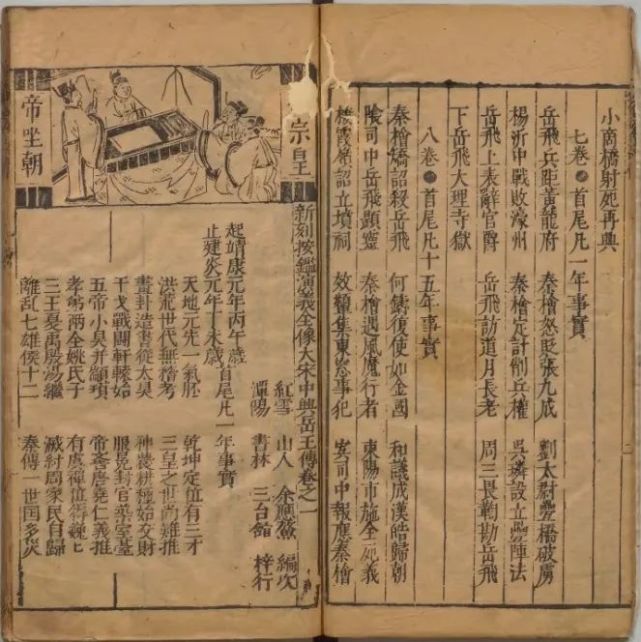 小商橋射死再興
七卷 首尾凡一年事實
岳飛兵距黃龍府 秦檜怒貶張九成 劉太尉疊橋破虜
楊沂中戰敗濠州 秦檜定計削兵權 吳璘設立疊陣法
岳飛上表辭官爵 岳飛訪道月長老 周三畏鞫勘岳飛
下岳飛大理寺獄
八卷 首尾凡十五年事實
秦檜矯詔殺岳飛 何鑄復使如金國 和議成洪皓歸朝
陰司中岳飛顯靈 秦檜遇風魔行者 東陽市施全死義
棲霞嶺詔立墳祠 效顰集東窓事犯 冥司中報應秦檜
宗皇
帝坐朝
新刻按鑑演義全像大宋中興岳王傳卷之一
紅雪 山人 余應鰲 編次
潭陽 書林 三台館 梓行
起靖康元年丙午歲
止建炎元年丁未歲 首尾凡一年事實
天地元先一氣胚 乾坤定位有三才
洪荒世代無稽考 三皇之世尚難推
畫卦造書從太昊 神農耕種始交財
干戈戰鬪軒轅始 服冕封官築室臺
五帝小昊并顓頊 帝嚳唐堯仁義推
孝弟兩全姚氏子 有虞禪位得巍巍
三王夏禹殷湯繼 滅紂周家民自歸
離乱七雄侯十二 秦傳一世国多災